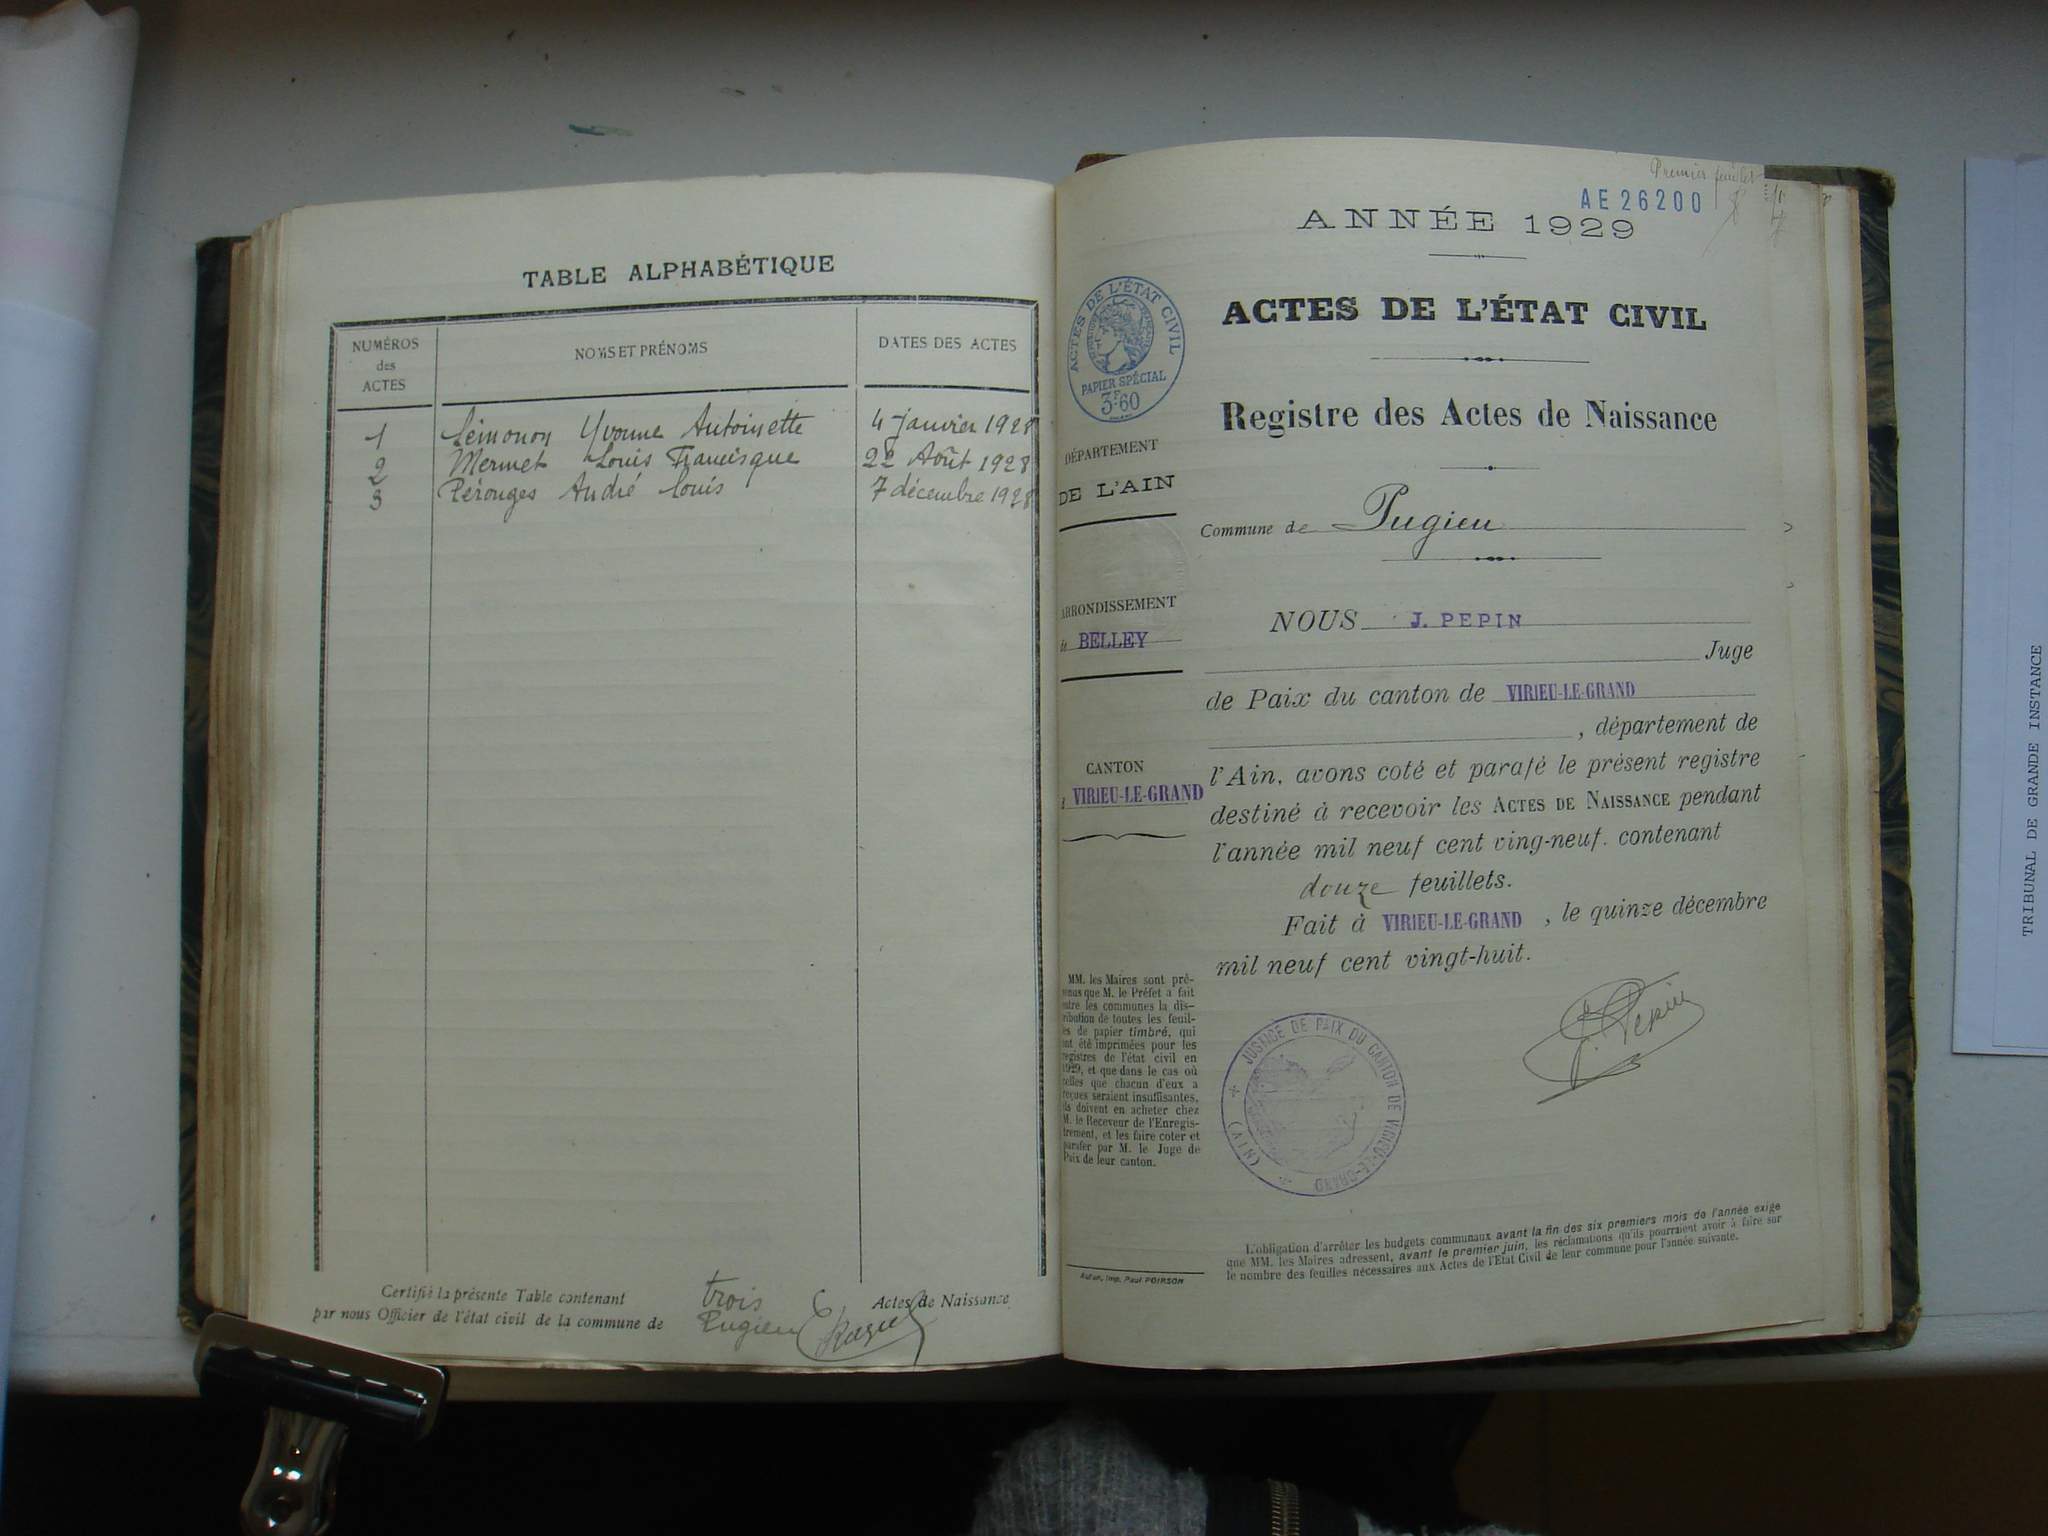 TABLE ALPHABÉTIQUE
NUMÉROS
des
ACTES
NOMS ET PRÉNOMS
DATES DES ACTES
1 Lémonon Yvonne Antoinette 4 Janvier 1928
2 Mermet Louis Francisque 22 Août 1928
3 Pérouges André Louis 7 décembre 1928
Certifié la présente Table contenant trois Actes de Naissance
par nous Officier de l'état civil de la commune de Pugieu
Premier feuillet
AE 26200
ANNÉE 1929
ACTES DE L'ÉTAT CIVIL
ACTES DE L'ÉTAT CIVIL
PAPIER SPÉCIAL
3F60
Registre des Actes de Naissance
DÉPARTEMENT
DE L'AIN
Commune de Pugieu
ARRONDISSEMENT
de BELLEY
NOUS J. PEPIN
Juge
de Paix du canton de VIRIEU-LE-GRAND
, département de
CANTON
VIRIEU-LE-GRAND
l'Ain, avons coté et parafé le présent registre
destiné à recevoir les ACTES DE NAISSANCE pendant
l'année mil neuf cent ving-neuf. contenant
douze feuillets.
Fait à VIRIEU-LE-GRAND , le quinze décembre
mil neuf cent vingt-huit.
J. Pepin
MM. les Maires sont pré-
venus que M. le Préfet a fait
entre les communes la dis-
tribution de toutes les feuil-
les de papier timbré, qui
ont été imprimées pour les
registres de l'état civil en
1929, et que dans le cas où
celles que chacun d'eux a
reçues seraient insuffisantes,
ils doivent en acheter chez
M. le Receveur de l'Enregis-
trement, et les faire coter et
parafer par M. le Juge de
Paix de leur canton.
JUSTICE DE PAIX DU CANTON DE VIRIEU-LE-GRAND
(AIN)
Autun, Imp. Paul POIRSON
L'obligation d'arrêter les budgets communaux avant la fin des six premiers mois de l'année exige
que MM. les Maires adressent, avant le premier juin, les réclamations qu'ils pourraient avoir à faire sur
le nombre des feuilles nécessaires aux Actes de l'Etat Civil de leur commune pour l'année suivante.
TRIBUNAL DE GRANDE INSTANCE